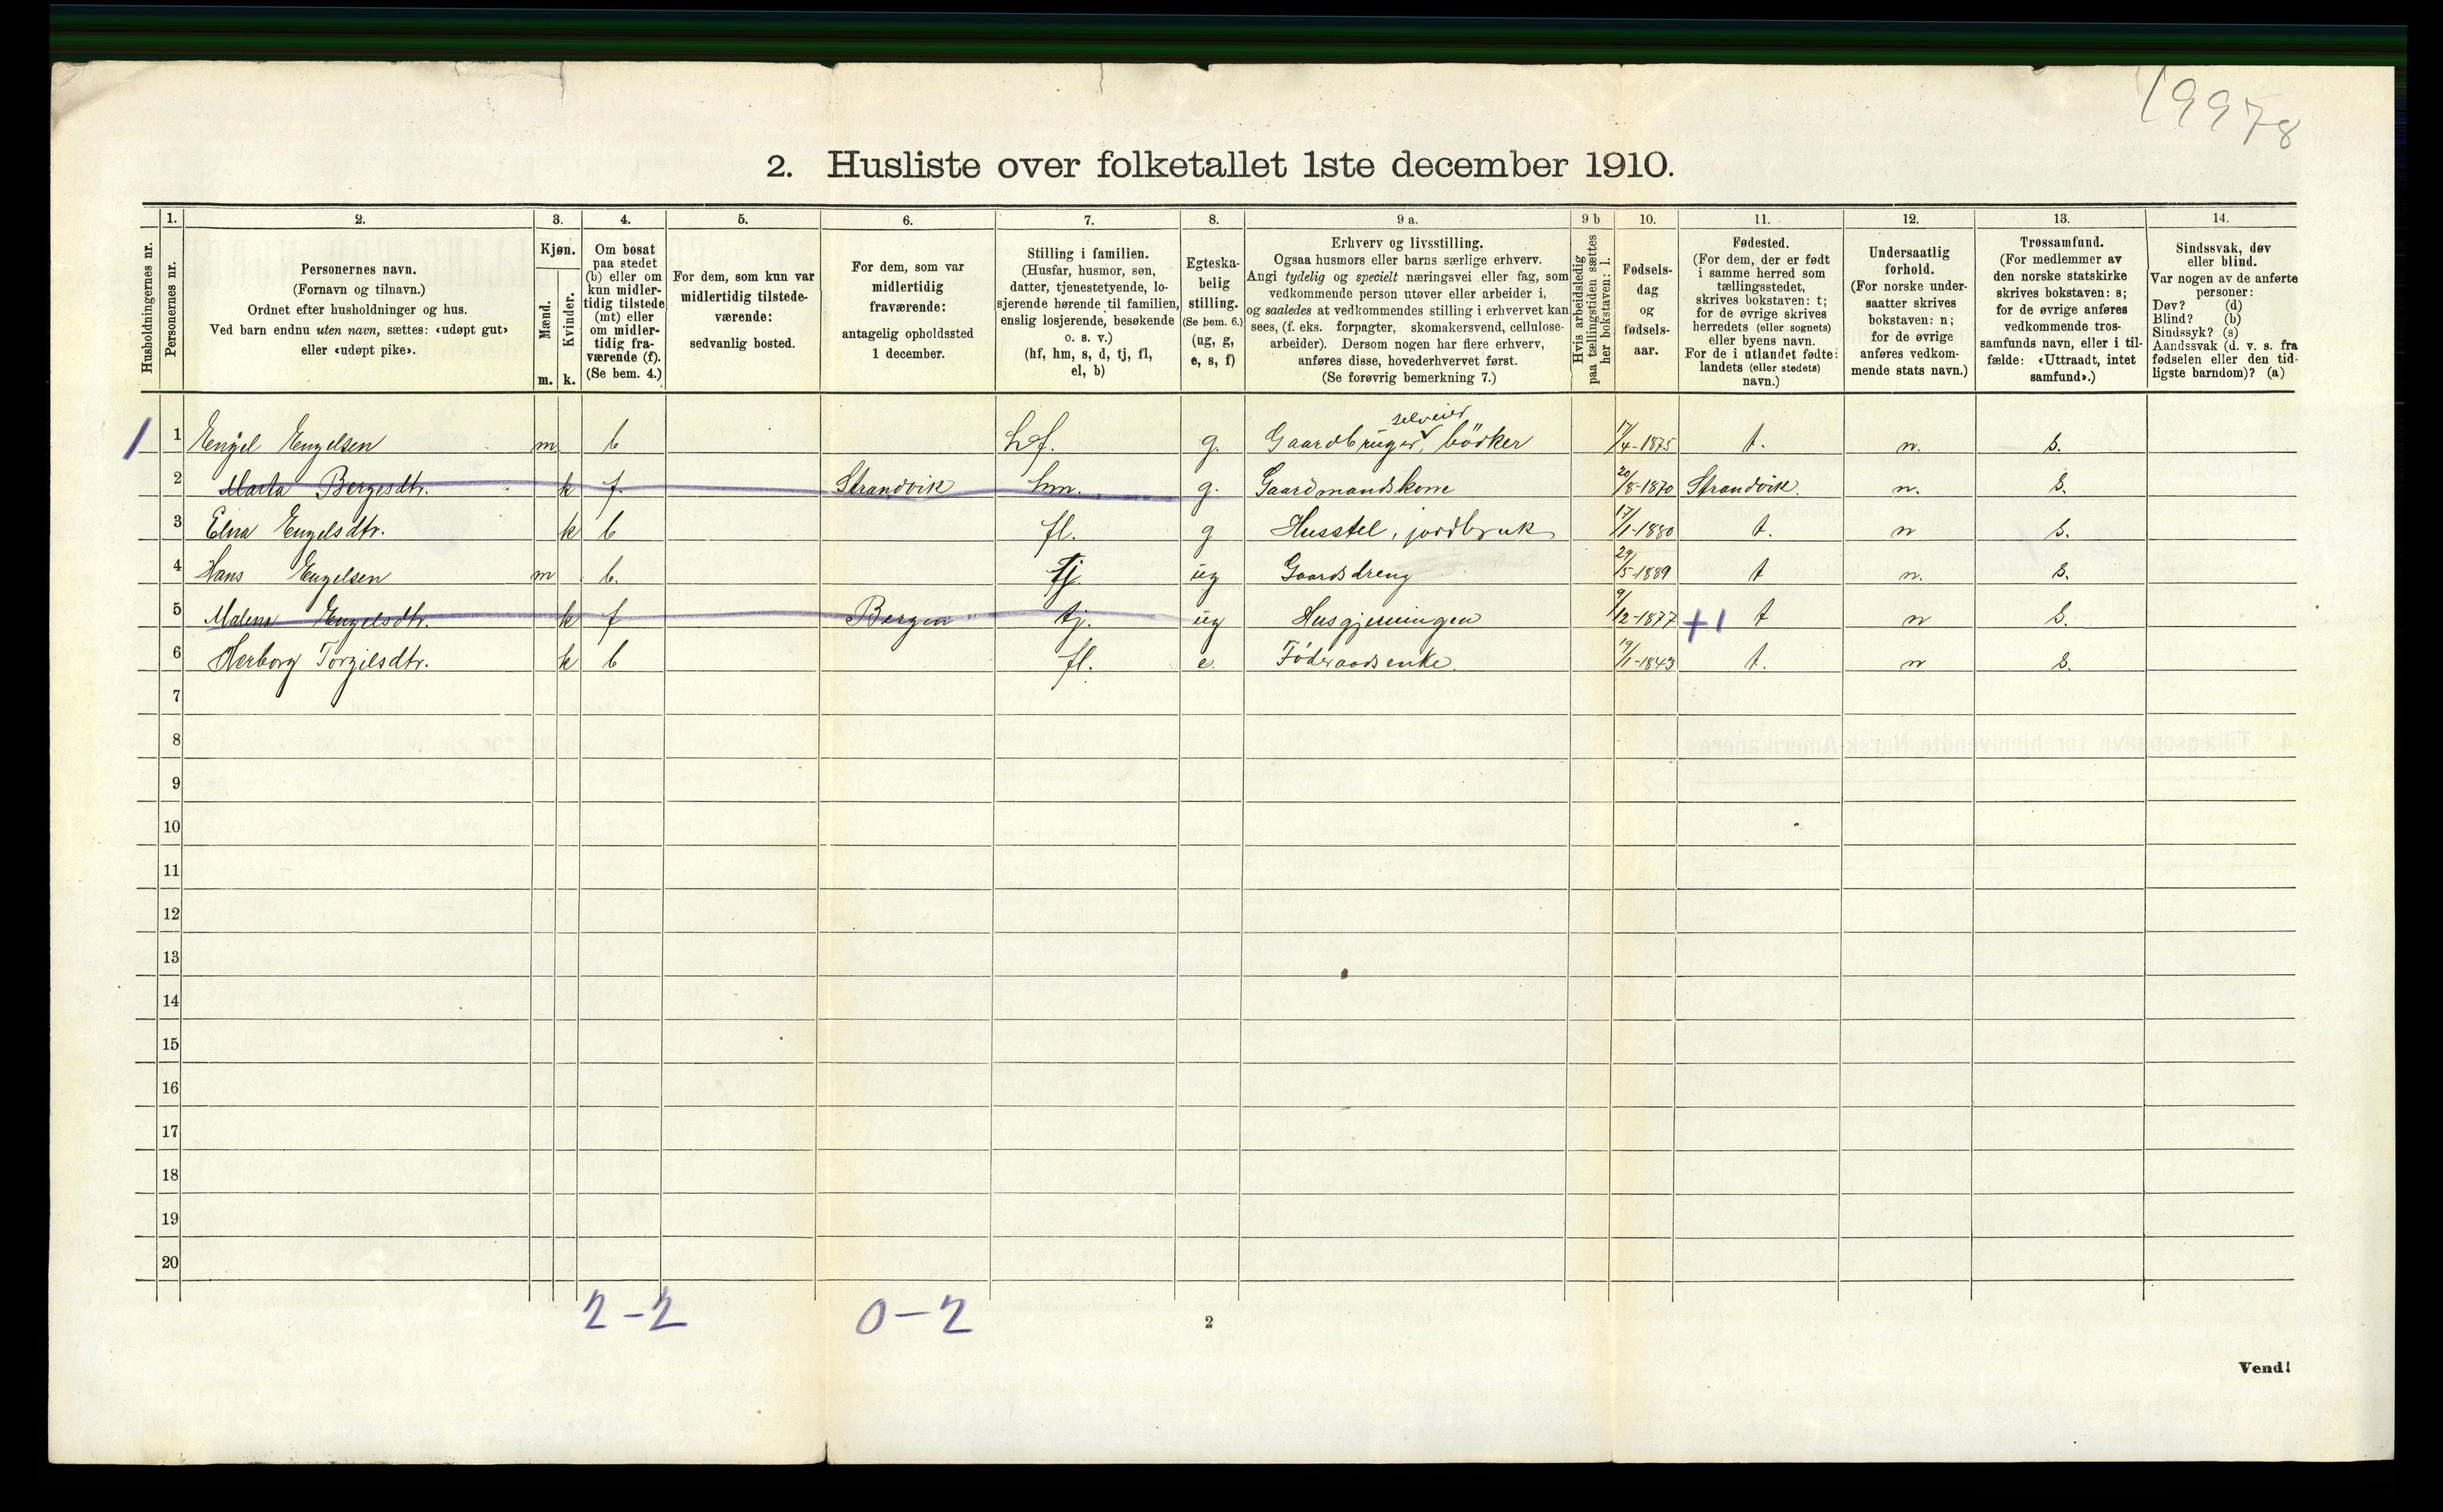 19978
2. Husliste over folketallet 1ste december 1910.
Husholdningernes nr.
1.
Personernes nr.
2.
Personernes navn.
(Fornavn og tilnavn.)
Ordnet efter husholdninger og hus.
Ved barn endnu uten navn, sættes: «udøpt gut»
eller «udøpt pike».
3.
Kjøn.
Mænd.
m.
Kvinder.
k.
4.
Om bosat
paa stedet
(b) eller om
kun midler-
tidig tilstede
(mt) eller
om midler-
tidig fra-
værende (f).
(Se bem. 4.)
5.
For dem, som kun var
midlertidig tilstede-
værende:
sedvanlig bosted.
6.
For dem, som var
midlertidig
fraværende:
antagelig opholdssted
1 december.
7.
Stilling i familien.
(Husfar, husmor, søn,
datter, tjenestetyende, lo-
sjerende hørende til familien,
enslig losjerende, besøkende
o. s. v.)
(hf, hm, s, d, tj, fl,
el, b)
8.
Egteska-
belig
stilling.
(Se bem. 6.)
(ug, g,
e, s, f)
9 a.
Erhverv og livsstilling.
Ogsaa husmors eller barns særlige erhverv.
Angi tydelig og specielt næringsvei eller fag, som
vedkommende person utøver eller arbeider i,
og saaledes at vedkommendes stilling i erhvervet kan
sees, (f. eks. forpagter, skomakersvend, cellulose-
arbeider). Dersom nogen har flere erhverv,
anføres disse, hovederhvervet først.
(Se forøvrig bemerkning 7.)
9 b
Hvis arbeidsledig
paa tællingstiden sættes
her bokstaven: l.
10.
Fødsels-
dag
og
fødsels-
aar.
11.
Fødested.
(For dem, der er født
i samme herred som
tællingsstedet,
skrives bokstaven: t;
for de øvrige skrives
herredets (eller sognets)
eller byens navn.
For de i utlandet fødte:
landets (eller stedets)
navn.)
12.
Undersaatlig
forhold.
(For norske under-
saatter skrives
bokstaven: n;
for de øvrige
anføres vedkom-
mende stats navn.)
13.
Trossamfund.
(For medlemmer av
den norske statskirke
skrives bokstaven: s;
for de øvrige anføres
vedkommende tros-
samfunds navn, eller i til-
fælde: «Uttraadt, intet
samfund».)
14.
Sindssvak, døv
eller blind.
Var nogen av de anførte
personer:
Døv? (d)
Blind? (b)
Sindssyk? (s)
Aandssvak (d. v. s. fra
fødselen eller den tid-
ligste barndom)? (a)
selveier
1 1 Engel Engelsen m b hf. g. Gaardbruger, bödker 17/4-1875 t. n. s.
2 Marta Bergesdtr. k f. Strandvik hm. g. Gaardmandskone 20/8-1870 Strandvik. n. s.
3 Elna Engelsdtr. k b fl. g Husstel, jordbruk 17/1-1880 t. n s.
4 Hans Engelsen m b. tj ug Gaardsdreng 29/5-1889 t n. s.
5 Malena Engelsdtr. k f Bergen tj. ug Husgjerningen 9/12-1877 +1 t n s.
6 Herborg Torgilsdtr. k b fl. e. Föderaadsenke. 19/1-1843 t. n s.
7
8
9
10
11
12
13
14
15
16
17
18
19
20
2-2 0-2
2
Vend!